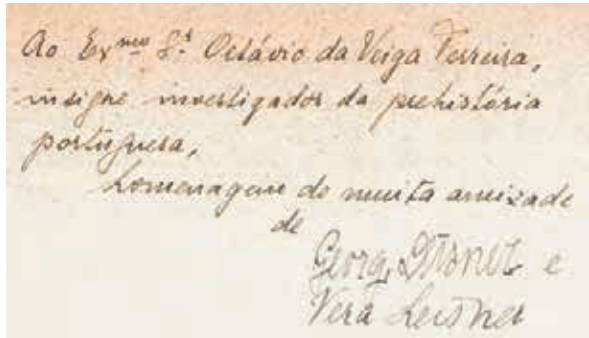 Ao Exmo Sr. Octávio da Veiga Ferreira,
insigne investigador da prehistória
portuguesa,
homenagem de muita amizade
de
Georg Leisner e
Vera Leisner